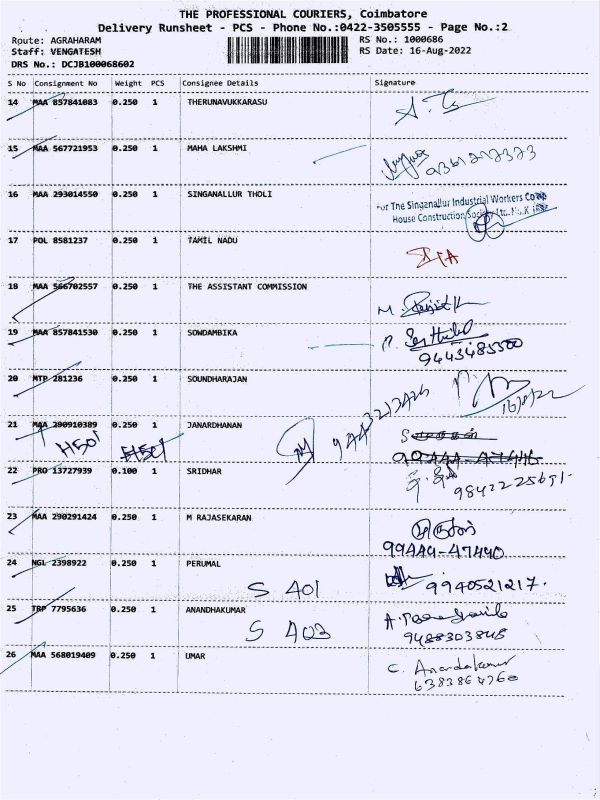 THE PROFESSIONAL COURIERS, Coimbatore
Delivery Runsheet - PCS - Phone No.:0422-3505555 - Page No.:2
Route: AGRAHARAM RS No.: 1000686
Staff: VENGATESH RS Date: 16-Aug-2022
DRS No.: DCJB100068602
S No Consignment No Weight PCS Consignee Details Signature
14 MAA 857841083 0.250 1 THERUNAVUKKARASU
15 MAA 567721953 0.250 1 MAHA LAKSHMI
16 MAA 293014550 0.250 1 SINGANALLUR THOLI
For The Singanallur Industrial Workers Co
House Construction Society Ltd.
17 POL 8581237 0.250 1 TAMIL NADU
18 MAA 566702557 0.250 1 THE ASSISTANT COMMISSION
19 MAA 857841530 0.250 1 SOWDAMBIKA
9443485500
20 MTP 281236 0.250 1 SOUNDHARAJAN
16/8/22
21 MAA 290910389 0.250 1 JANARDHANAN
H501 H501
99444-47446
22 PRO 13727939 0.100 1 SRIDHAR
9842225691-
23 MAA 290291424 0.250 1 M RAJASEKARAN
99444-47440
24 NGL 2398922 0.250 1 PERUMAL
S 401 9940521217.
25 TRP 7795636 0.250 1 ANANDHAKUMAR
S 403 9488303845
26 MAA 568019409 0.250 1 UMAR
C. Anandakumar
6383864760